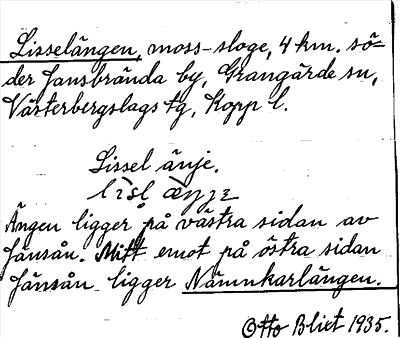 Lisselängen, moss-sloge, 4 km. sö-
der Jansbrända by, Grangärde sn,
Västerbergslags tg, Kopp l.
Lissel änje.
Ängen ligger på västra sidan av
Jänsån. Mitt emot på östra sidan
Jänsån ligger Nämnkarlängen.
Otto Bliet 1935.